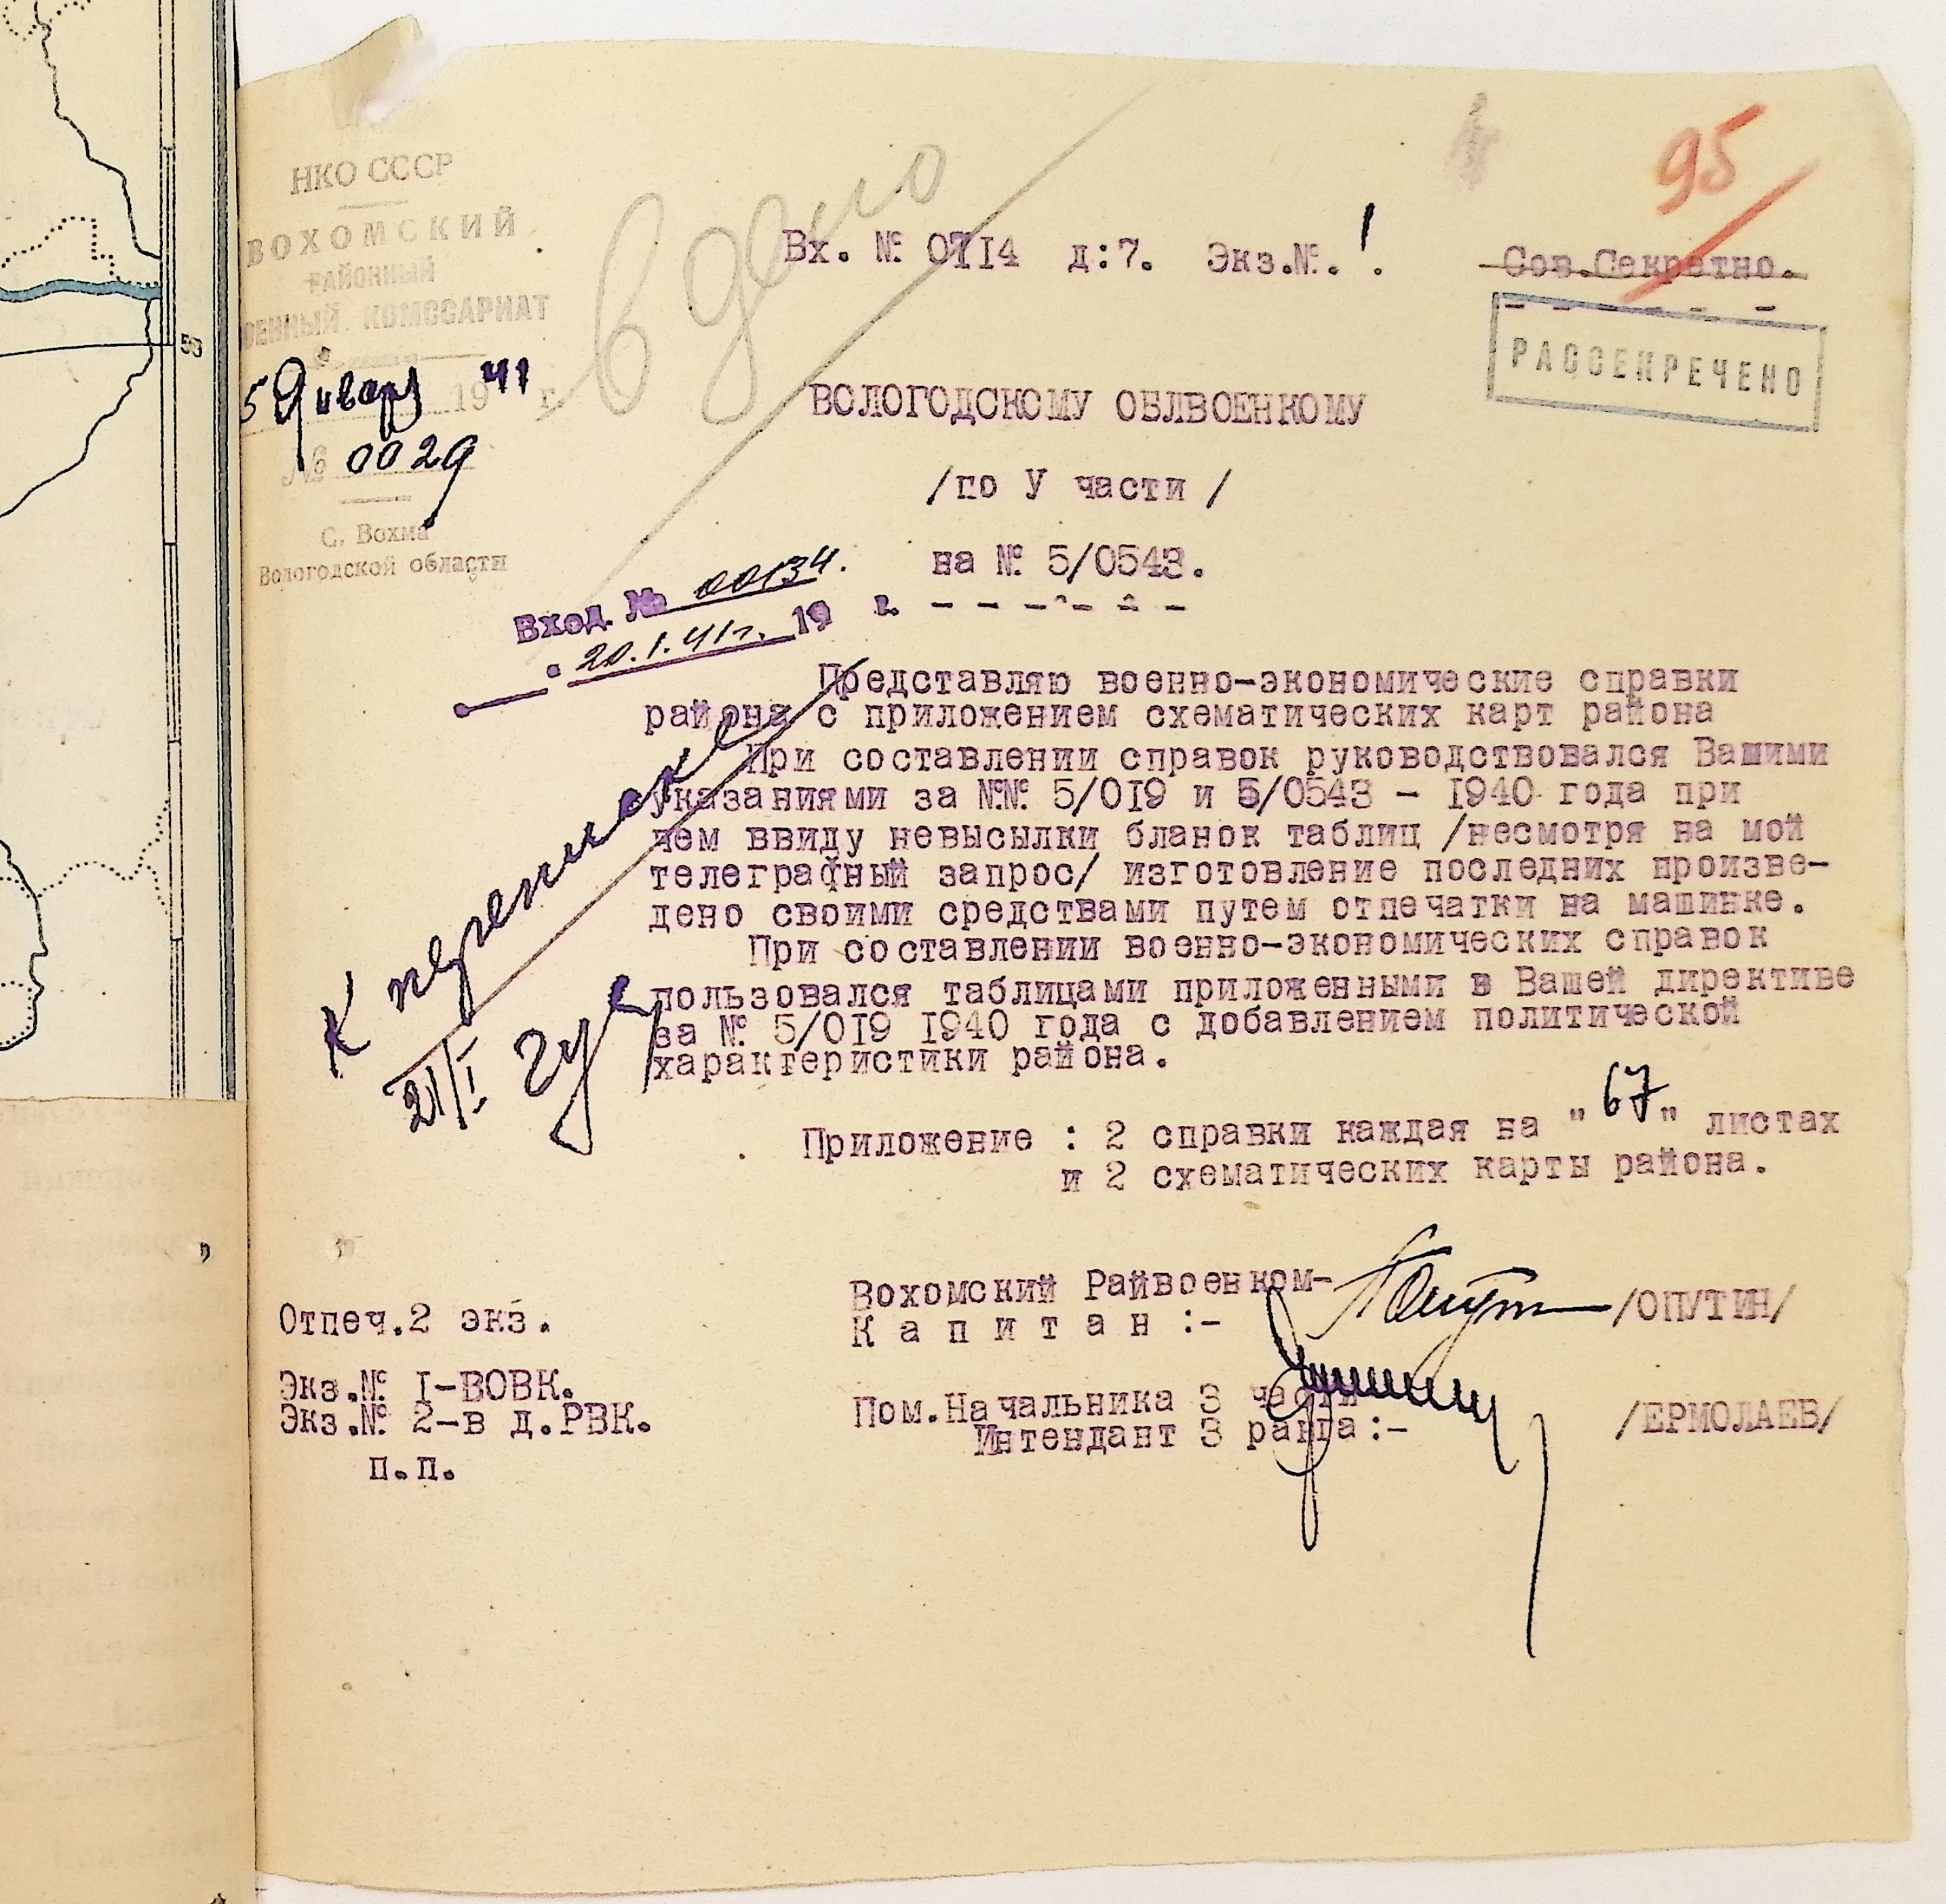 НКО СССР
ВОХОМСКИЙ
РАЙОННЫЙ
ОЕННЫЙ КОМССАРИАТ
5 Января 1941 г.
№ 0029
С. Вохма
Вологодской области
в дело
95
Вх. № 0714 д:7. Экз.№. 1.
Сов.Секретно.
РАССЕКРЕЧЕНО
ВОЛОГОДСКОМУ ОБЛВОЕНКОМУ
/по У части /
на № 5/0543.
Вход. № 00134.
20.1.41г. 19 г.
Представляю военно-экономические справки
района с приложением схематических карт района
При составлении справок руководствовался Вашими
указаниями за №№ 5/0I9 и 5/0543 - I940 года при
чем ввиду невысылки бланок таблиц /несмотря на мой
телеграфный запрос/ изготовление последних произве-
дено своими средствами путем отпечатки на машинке.
При составлении военно-экономических справок
пользовался таблицами приложенными в Вашей директиве
за № 5/0I9 I940 года с добавлением политической
характеристики района.
К переписке
21/I
Приложение : 2 справки каждая на "67" листах
и 2 схематических карты района.
Вохомский Райвоенком-
К а п и т а н :- /ОПУТИН/
Пом.Начальника 3 части
Интендант 3 ранга:- /ЕРМОЛАЕВ/
Отпеч.2 экз.
Экз.№ I-ВОВК.
Экз.№ 2-в д.РВК.
п.п.